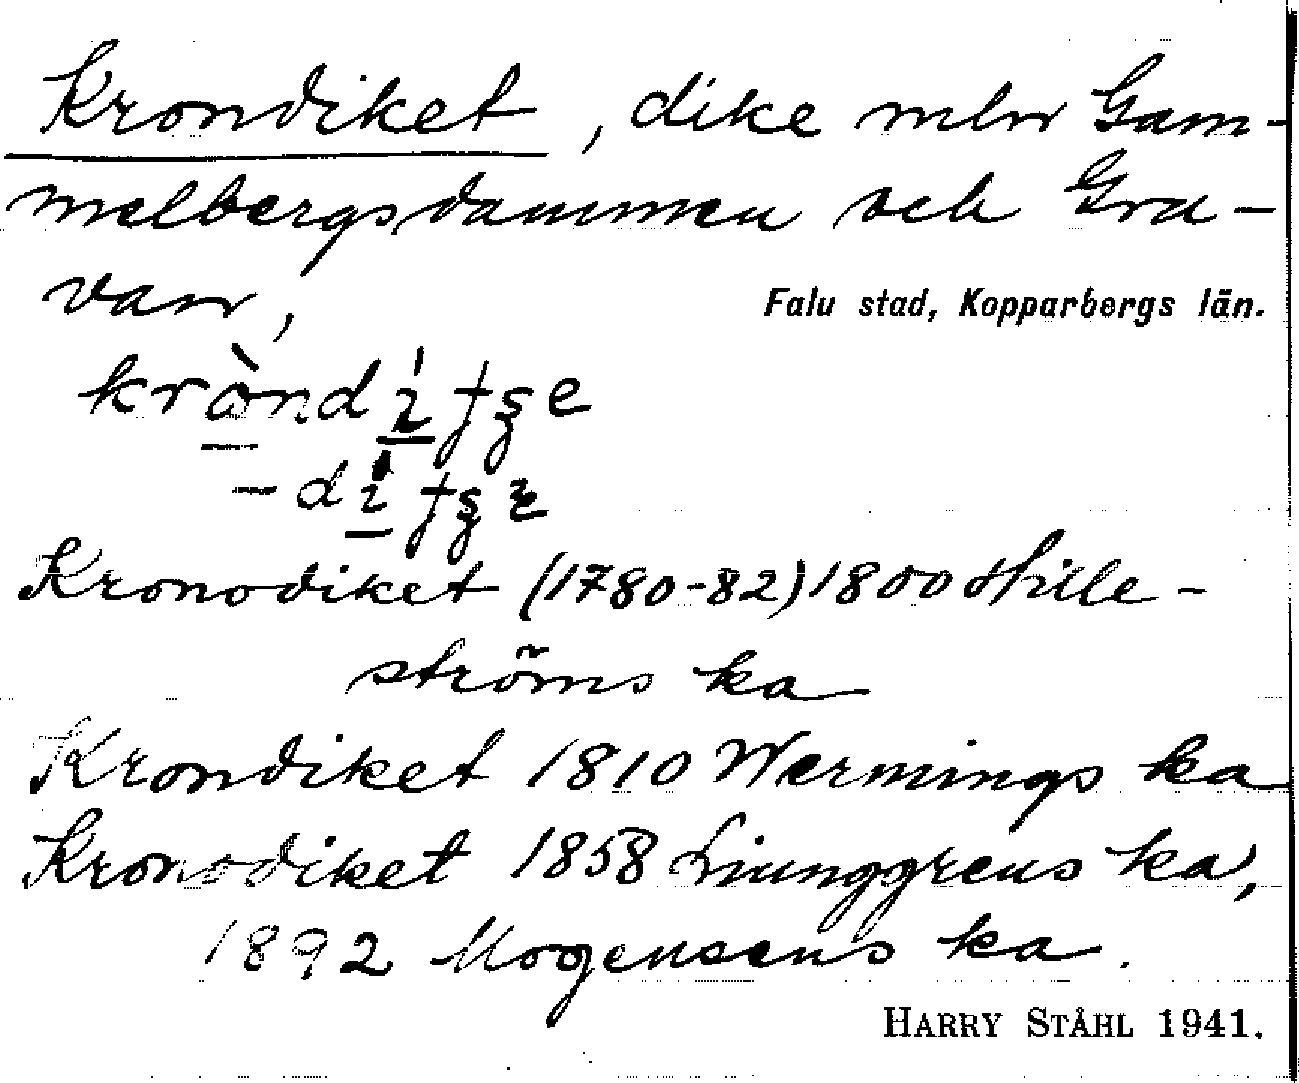 Krondiket, dike mlnr Gam-
melbergsdammen och Gru-
van,
Falu stad, Kopparbergs län.
Kronodiket (1780-82) 1800 Hille-
ströms ka
Krondiket 1810 Wermings ka
Kronodiket 1858 Liunggrens ka,
1892 Mogensens ka.
HARRY STÅHL 1941.